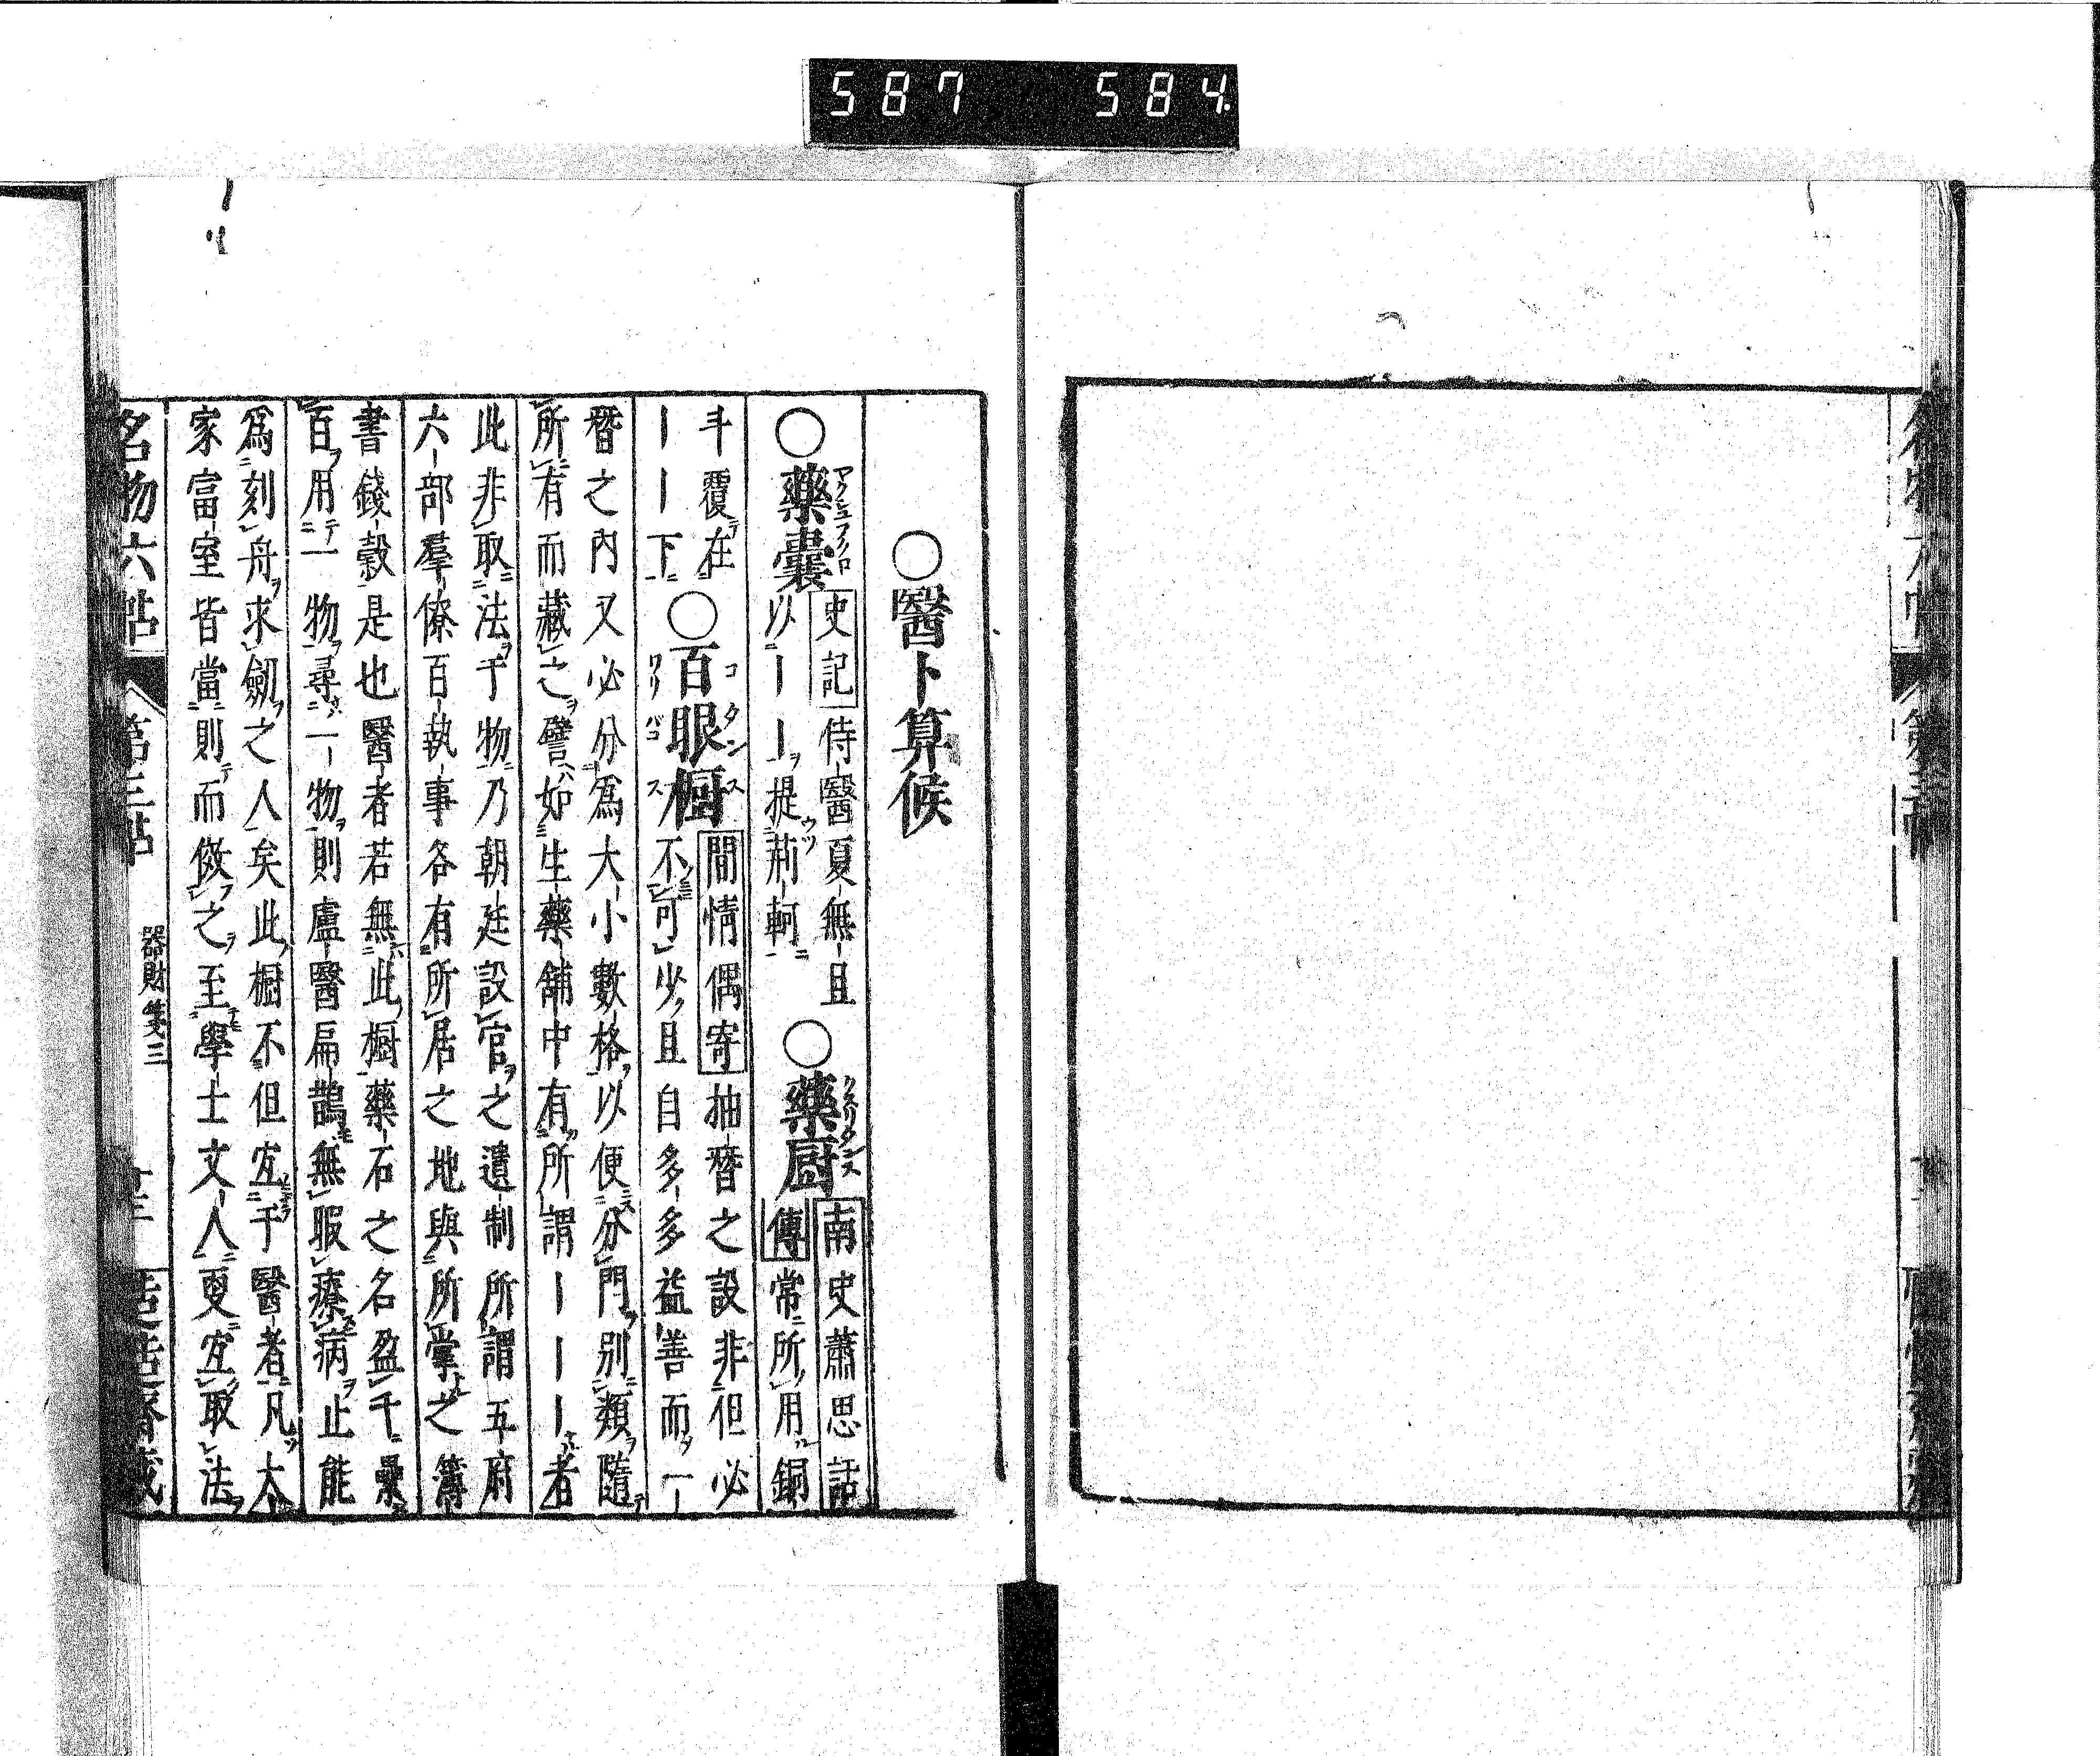 587 584
○醫卜算候
○藥囊
史記侍醫夏無且
以丨丨提荊軻
○藥厨
南史蕭思話
傳常所用銅
斗覆在
丨丨下
○百眼櫥
間情偶寄抽朁之設非但必
不可少且自多多益善而一
朁之內又必分為大小數格以便分門別類隨
所有而藏之譬如生藥舖中有所謂丨丨丨者
此非取法于物乃朝廷設官之遺制所謂五府
六部羣僚百執事各有所居之地與所掌之簿
書錢穀是也醫者若無此櫥藥石之名盈千累
百用一物尋一物則盧醫扁鵲無暇療病止能
爲刻舟求劍之人矣此櫥不但宜于醫者凡大
家富室皆當則而倣之至學士文人更宜取法
名物六帖
第三帖
器財箋三